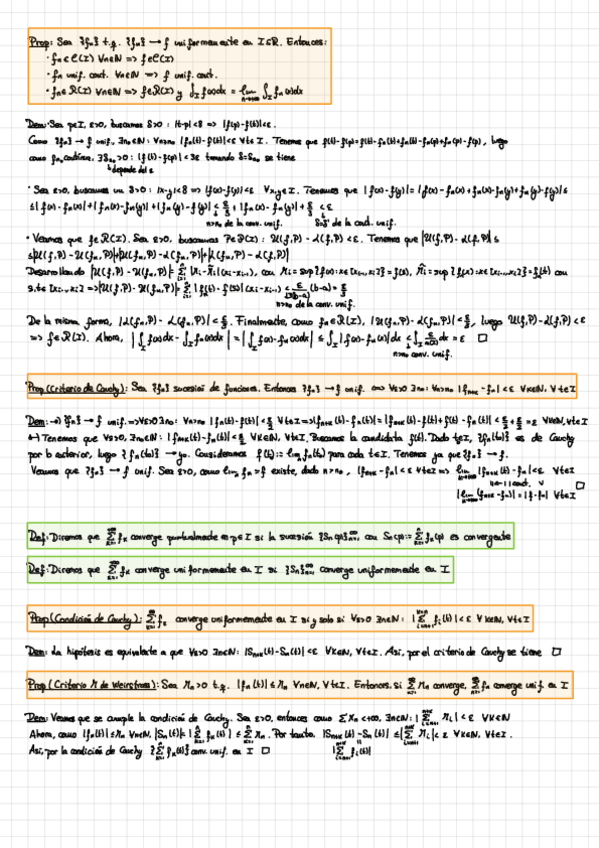 Prop: Sea {fₙ} t.q. {fₙ} → f uniformemente en I⊆ℝ. Entonces:
· fₙ∈C(I) ∀n∈ℕ => f∈C(I)
· fₙ unif. cont. ∀n∈ℕ => f unif. cont.
· fₙ∈R(I) ∀n∈ℕ => f∈R(I) y ∫_I f(x)dx = lim_{n→∞} ∫_I fₙ(x)dx
Dem: · Sea p∈I, ε>0, buscamos δ>0 : |t-p|<δ => |f(p)-f(t)|<ε.
Como {fₙ} → f unif., ∃n₀∈ℕ: ∀n≥n₀ |fₙ(t)-f(t)|<ε ∀t∈I. Tenemos que f(t)-f(p)=f(t)-fₙ(t)+fₙ(t)-fₙ(p)+fₙ(p)-f(p), luego
como fₙ continua, : |f(t)-f(p)|<3ε tomando se tiene
depende de ε
· Sea ε>0, buscamos un δ>0 : |x-y|<δ => |f(x)-f(y)|<ε ∀x,y∈I. Tenemos que |f(x)-f(y)|=|f(x)-fₙ(x)+fₙ(x)-fₙ(y)+fₙ(y)-f(y)|≤
≤|f(x)-fₙ(x)|+|fₙ(x)-fₙ(y)|+|fₙ(y)-f(y)| < ε/3 + |fₙ(x)-fₙ(y)| + ε/3 < ε
n>n₀ de la conv. unif. de la cont. unif.
· Veamos que f∈R(I). Sea ε>0, buscamos P∈P(I) : U(f,P)-L(f,P)<ε. Tenemos que |U(f,P)-L(f,P)| ≤
≤|U(f,P)-U(fₙ,P)|+|U(fₙ,P)-L(fₙ,P)|+|L(fₙ,P)-L(f,P)|
Desarrollando
n>n₀ de la conv. unif.
De la misma forma, |L(f,P)-L(fₙ,P)|<ε/3. Finalmente, como fₙ∈R(I), |U(fₙ,P)-L(fₙ,P)|<ε/3, luego U(f,P)-L(f,P)<ε
=> f∈R(I). Ahora, |∫_I f(x)dx-∫_I fₙ(x)dx| = |∫_I f(x)-fₙ(x)dx| ≤ ∫_I |f(x)-fₙ(x)|dx = ε □
n>n₀ conv. unif.
Prop (Criterio de Cauchy): Sea {fₙ} sucesión de funciones. Entonces {fₙ} → f unif. <=> ∀ε>0 ∃n₀: ∀n>n₀ |fₙ₊ₖ-fₙ|<ε ∀k∈ℕ, ∀t∈I
Dem: →) {fₙ} → f unif. => ∀ε>0 ∃n₀: ∀n>n₀ |fₙ(t)-f(t)|<ε/2 ∀t∈I => |fₙ₊ₖ(t)-fₙ(t)|=|fₙ₊ₖ(t)-f(t)+f(t)-fₙ(t)|<ε/2+ε/2=ε ∀k∈ℕ, ∀t∈I
←) Tenemos que ∀ε>0, ∃n∈ℕ: |fₙ₊ₖ(t)-fₙ(t)|<ε/2 ∀k∈ℕ, ∀t∈I. Buscamos la candidata f(t). Dado t₀∈I, {fₙ(t₀)} es de Cauchy
por lo anterior, luego {fₙ(t₀)} → y₀. Consideramos f(t):= lim fₙ(t) para cada t∈I. Tenemos ya que {fₙ} → f.
Veamos que {fₙ} → f unif. Sea ε>0, como lim fₙ = f existe, dado n>n₀, |fₙ₊ₖ-fₙ|<ε ∀t∈I => lim |fₙ₊ₖ(t)-fₙ|<ε ∀t∈I
cont. □
|lim (fₙ₊ₖ-fₙ)|=|f-fₙ| ∀t∈I
Def: Diremos que ∑fₖ converge puntualmente en p∈I si la sucesión {Sₙ(p)}ₙ₌₁^∞ con Sₙ(p):=∑fₖ(p) es convergente
Def: Diremos que ∑fₖ converge uniformemente en I si {Sₙ}ₙ₌₁^∞ converge uniformemente en I.
Prop (Condición de Cauchy): ∑fₖ converge uniformemente en I si y solo si ∀ε>0 ∃n∈ℕ: |∑fᵢ(t)|<ε ∀k∈ℕ, ∀t∈I
Dem: La hipótesis es equivalente a que ∀ε>0 ∃n∈ℕ: |Sₙ₊ₖ(t)-Sₙ(t)|<ε ∀k∈ℕ, ∀t∈I. Así, por el criterio de Cauchy se tiene □
Prop (Criterio M de Weirstrass): Sea Mₙ>0 t.q. |fₙ(t)|≤Mₙ ∀n∈ℕ, ∀t∈I. Entonces, si ∑Mₙ converge, ∑fₙ converge unif. en I
Dem: Veamos que se cumple la condición de Cauchy. Sea ε>0, entonces como ∑Mₙ<+∞, ∃n∈ℕ: |∑Mᵢ|<ε ∀k∈ℕ
Ahora, como |fₙ(t)|≤Mₙ ∀n∈ℕ, |Sₙ(t)|=|∑fₖ(t)| ≤ ∑Mₙ. Por tanto, |Sₙ₊ₖ(t)-Sₙ(t)| ≤|∑Mᵢ|<ε ∀k∈ℕ, ∀t∈I.
Así, por la condición de Cauchy {∑fₖ(t)} conv. unif. en I □ |∑fᵢ(t)|